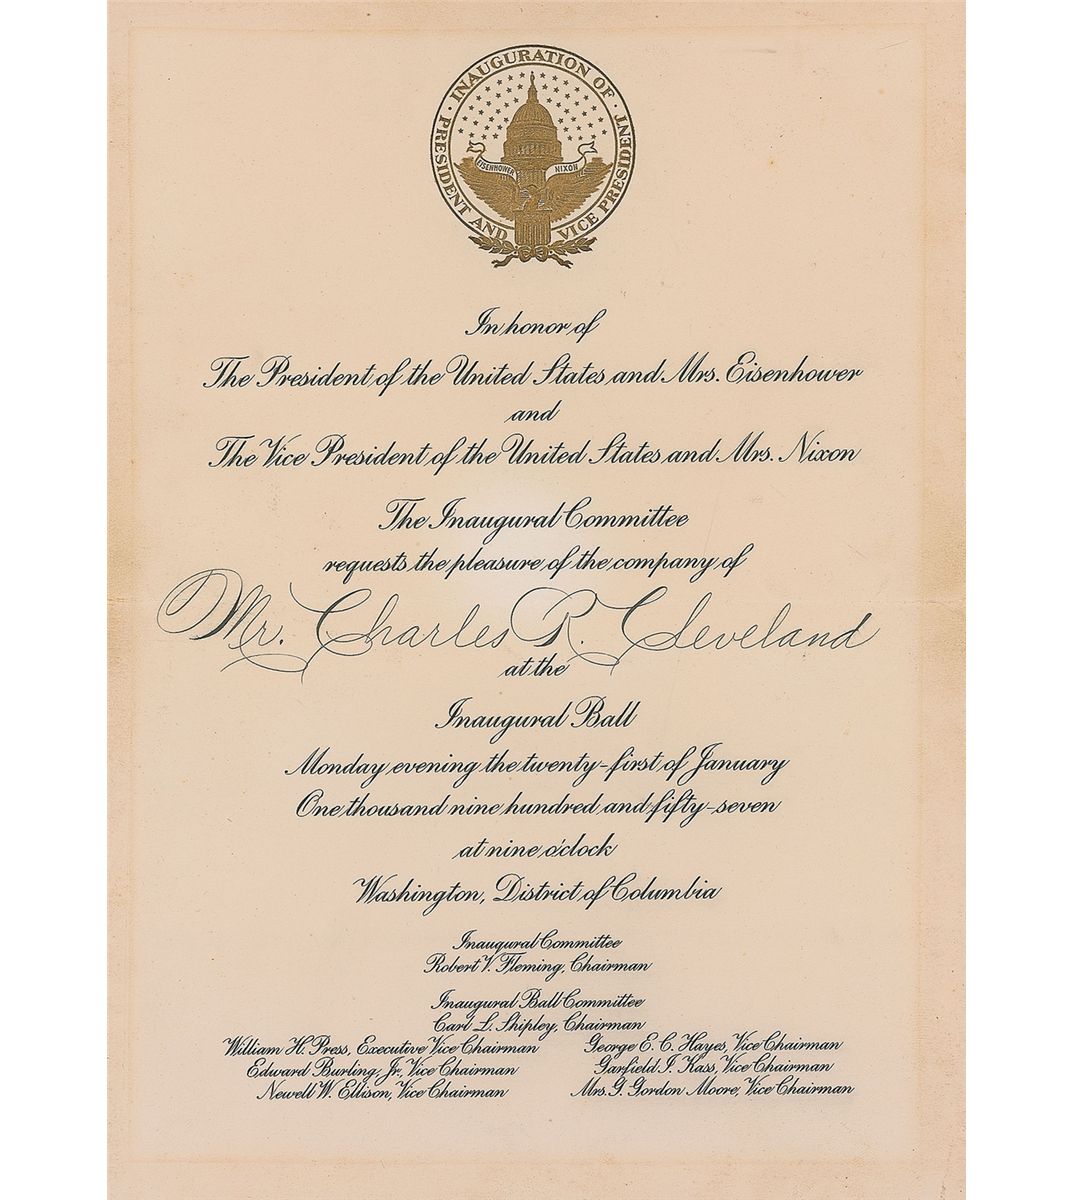 INAUGURATION OF
PRESIDENT AND VICE PRESIDENT
EISENHOWER NIXON
In honor of
The President of the United States and Mrs. Eisenhower
and
The Vice President of the United States and Mrs. Nixon
The Inaugural Committee
requests the pleasure of the company of
Mr. Charles R. Cleveland
at the
Inaugural Ball
Monday evening the twenty-first of January
One thousand nine hundred and fifty-seven
at nine o'clock
Washington, District of Columbia
Inaugural Committee
Robert V. Fleming, Chairman
Inaugural Ball Committee
Carl L. Shipley, Chairman
William H. Press, Executive Vice Chairman
Edward Burling, Jr., Vice Chairman
Newell W. Ellison, Vice Chairman
George E. C. Hayes, Vice Chairman
Garfield I. Kass, Vice Chairman
Mrs. G. Gordon Moore, Vice Chairman